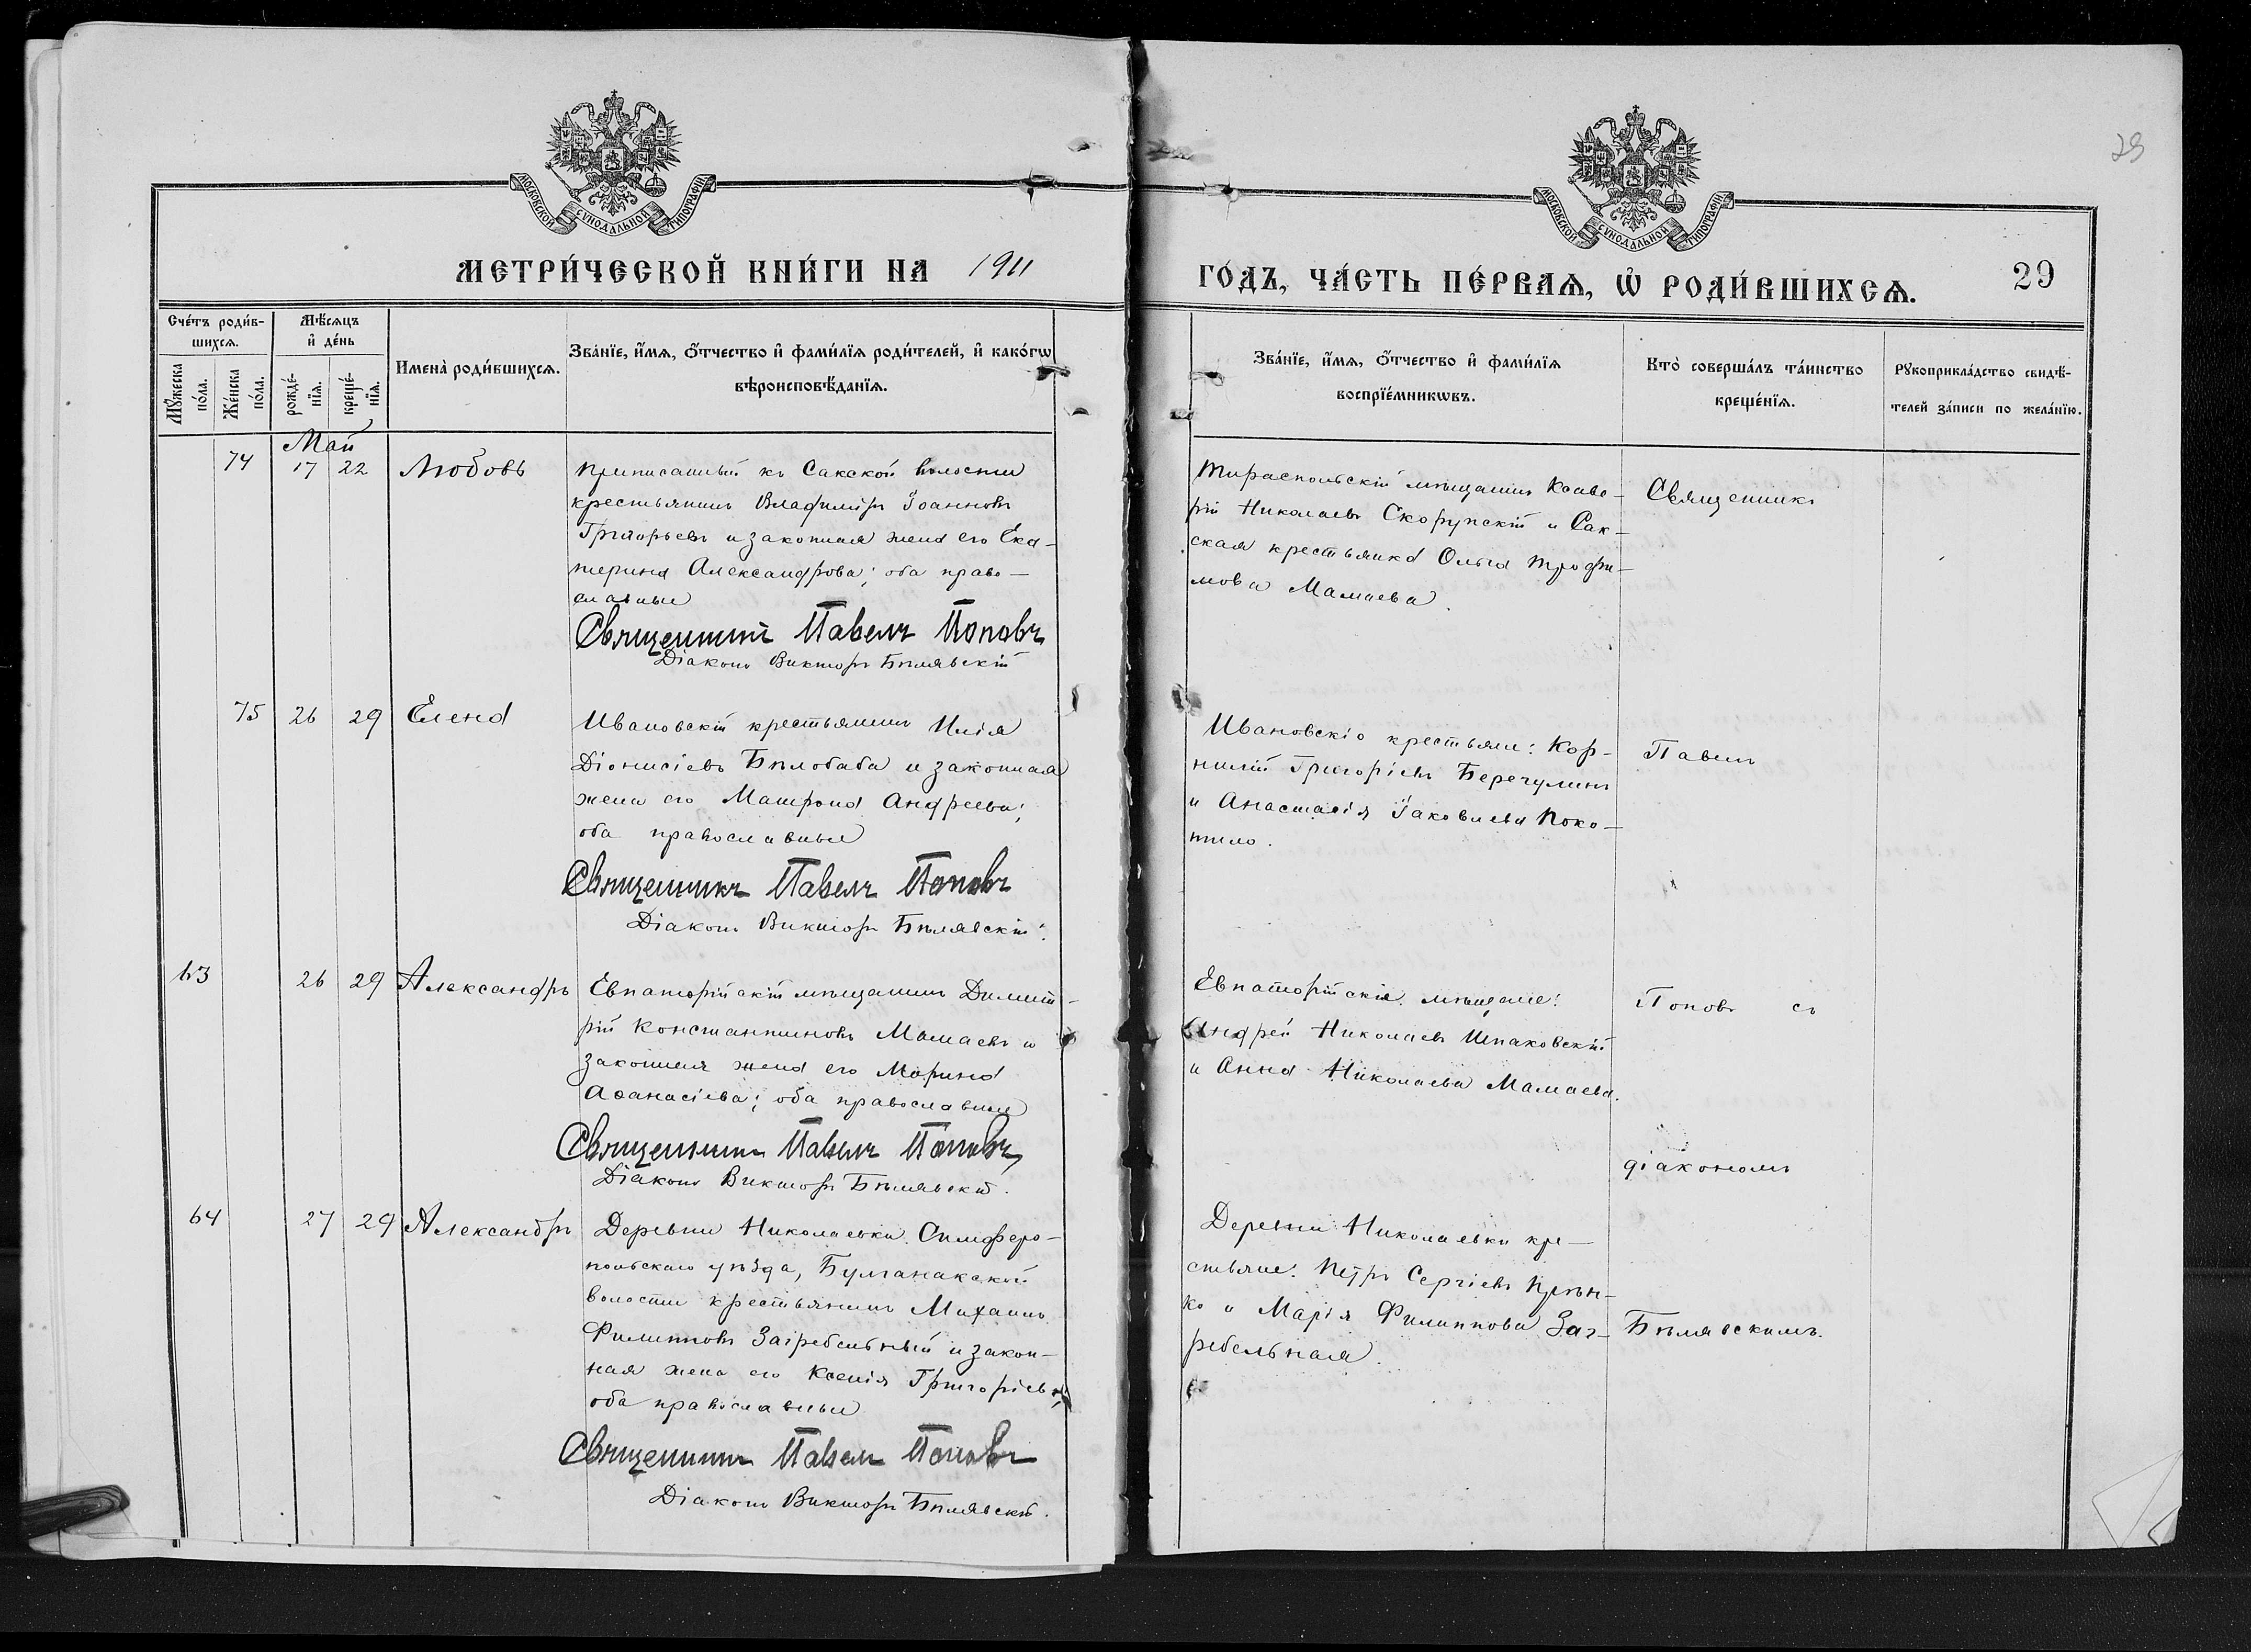 29
МОСКОВСКОЙ СѴНОДАЛЬНОЙ ТИПОГРАФІИ
МОСКОВСКОЙ СѴНОДАЛЬНОЙ ТИПОГРАФІИ
МЕТРИ́ЧЕСКОЙ КНИ́ГИ НА 1911
ГО́ДЪ, ЧА́СТЬ ПЕ́РВАѦ, Ѡ҆ РОДИ́ВШИХСѦ.
29
Сче́тъ роди́в-
шихсѧ.
Мꙋ́жеска по́ла.
Же́нска по́ла.
Мѣ́сѧцъ и҆ де́нь
рожде́-
нїѧ.
креще́-
нїѧ.
Имена̀ роди́вшихсѧ.
Зва́нїе, и҆́мѧ, ѻ҆́тчество и҆ фами́лїѧ роди́телей, и҆ како́гѡ
вѣроисповѣ́данїѧ.
Зва́нїе, и҆́мѧ, ѻ҆́тчество и҆ фами́лїѧ
воспрїе́мникѡвъ.
Кто̀ соверша́лъ та́инство
креще́нїѧ.
Рꙋкоприкла́дство свидѣ́-
телей за́писи по жела́нїю.
Май
74 17 22 Любовь
Приписанный къ Сакской волости
крестьянинъ Владиміръ Іоанновъ
Григорьевъ и законная жена его Ека-
терина Александрова; оба право-
славные
Священникъ Павелъ Поповъ
Діаконъ Викторъ Бѣлявскій
Тираспольскій мѣщанинъ Ксаве-
рій Николаевъ Скорупскій и Сак-
ская крестьянка Ольга Трофи-
мова Мамаева.
Священникъ
75 26 29 Елена
Ивановскій крестьянинъ Илія
Діонисіевъ Бѣлобаба и законная
жена его Матрона Андреева;
оба православные
Священникъ Павелъ Поповъ
Діаконъ Викторъ Бѣлявскій.
Ивановскіе крестьяне: Кор-
нилій Григоріевъ Беречулинъ
и Анастасія Іаковлева Поко-
тило.
Павелъ
63 26 29 Александръ
Евпаторійскій мѣщанинъ Димит-
рій Константиновъ Мамаевъ и
законная жена его Марина
Аѳанасіева; оба православные
Священникъ Павелъ Поповъ
Діаконъ Викторъ Бѣлявскій.
Евпаторійскіе мѣщане:
Андрей Николаевъ Шпаковскій
и Анна Николаева Мамаева.
Поповъ съ
діакономъ
64 27 29 Александръ
Деревни Николаевки Симферо-
польскаго уѣзда, Булганакской
волости крестьянинъ Михаилъ
Филипповъ Загребельный и закон-
ная жена его Ксенія Григоріева;
оба православные
Священникъ Павелъ Поповъ
Діаконъ Викторъ Бѣлявскій.
Деревни Николаевки кре-
стьяне: Петръ Сергіевъ
и Марія Филиппова Заг-
ребельная.
Бѣлявскимъ.